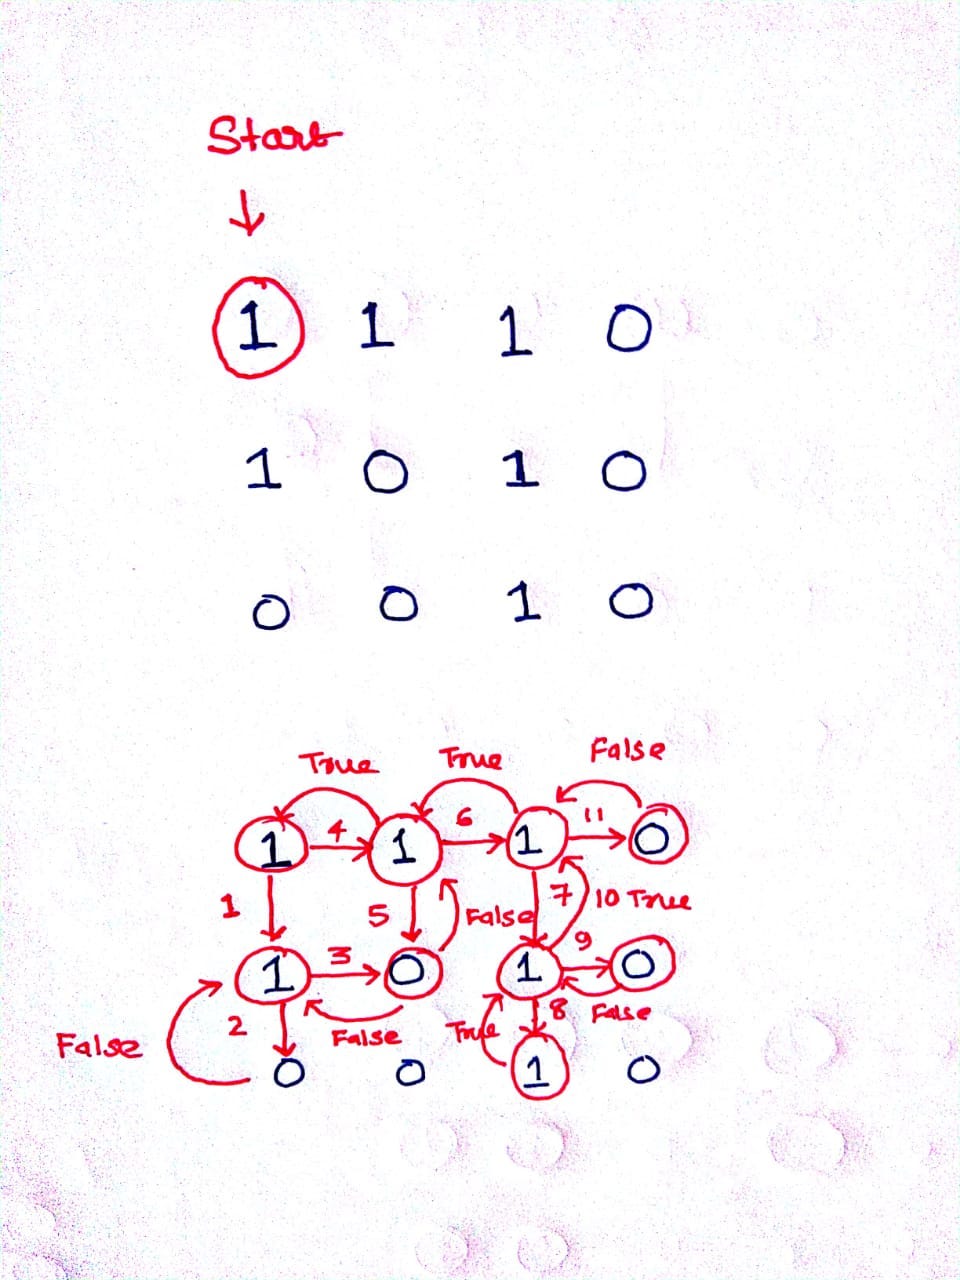 Start
1 1 1 0
1 0 1 0
0 0 1 0
True True False
4 6 11
1 1 1 0
1 5 False 7 10 True
3 9
1 0 1 0
2 8 False
False False True
0 0 1 0